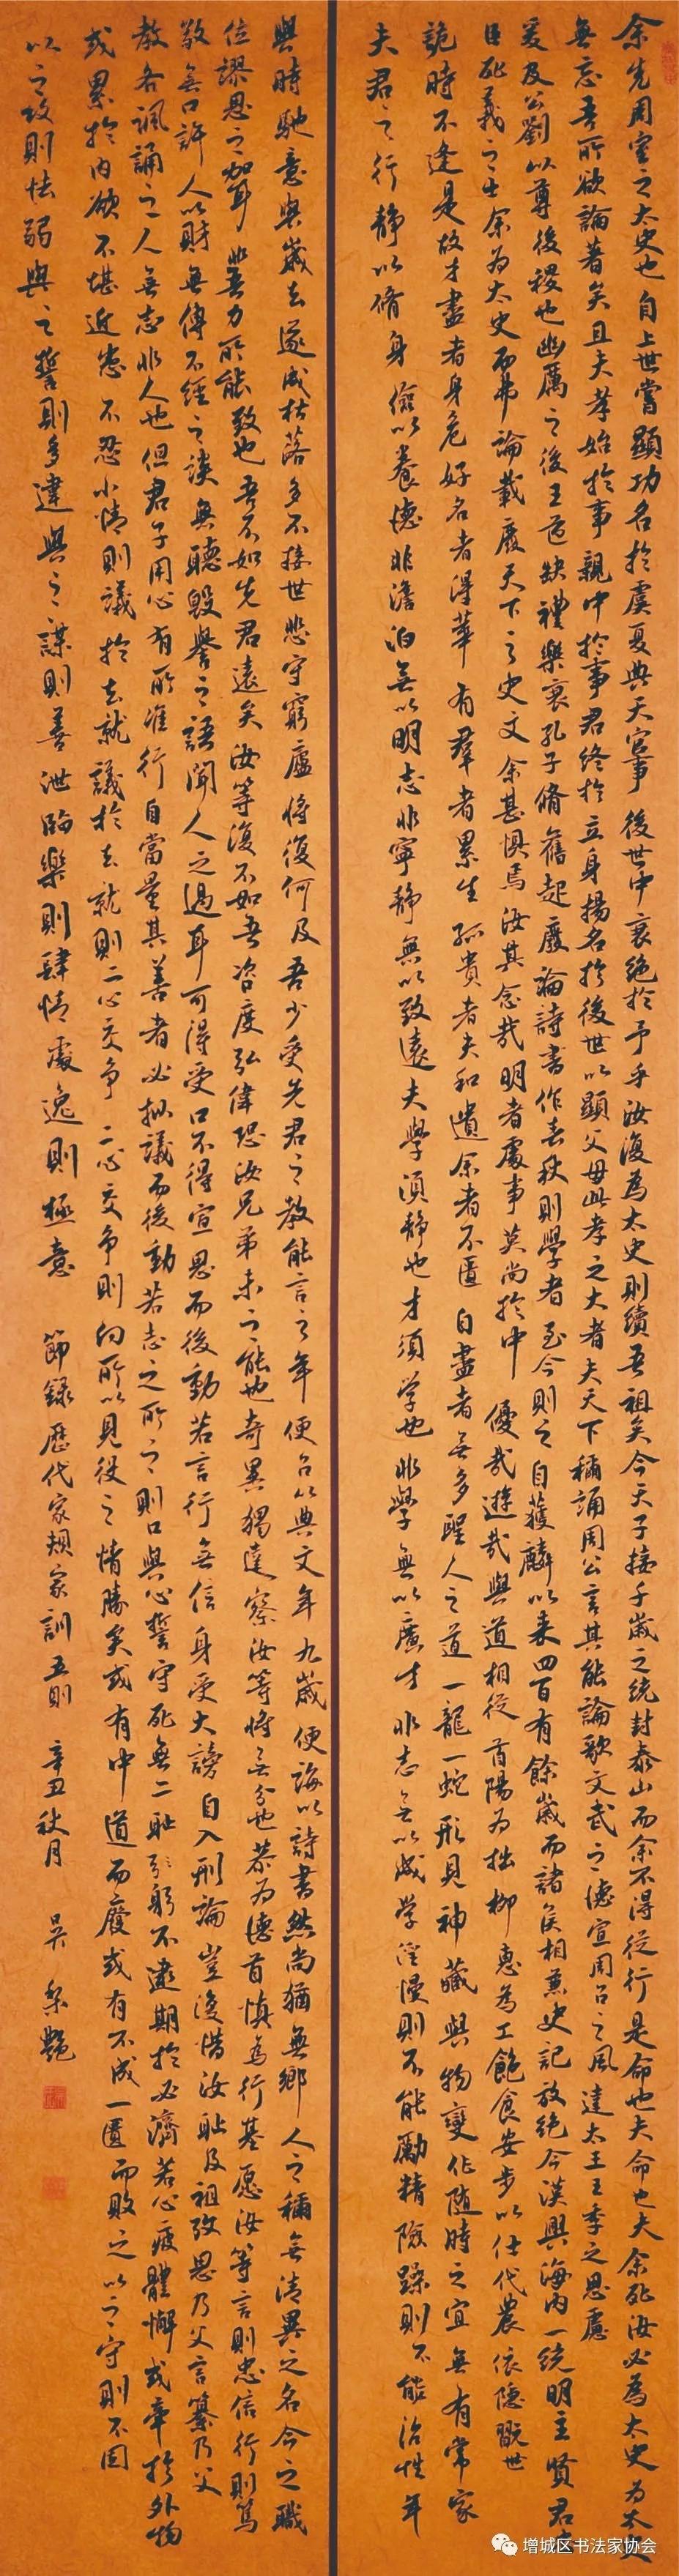 余先周室之太史也自上世嘗顯功名於虞夏典天官事後世中衰絶於予乎汝復為太史則續吾祖矣今天子接千歲之統封泰山而余不得從行是命也夫命也夫余死汝必為太史為太史
無忘吾所欲論著矣且夫孝始於事親中於事君終於立身揚名於後世以顯父母此孝之大者夫天下稱誦周公言其能論歌文武之德宣周召之風達太王王季之思慮
爰及公劉以尊後稷也幽厲之後王道缺禮樂衰孔子脩舊起廢論詩書作春秋則學者至今則之自獲麟以来四百有餘歲而諸侯相兼史記放絶今漢興海內一統明主賢君忠
臣死義之士余為太史而弗論載廢天下之史文余甚懼焉汝其念哉明者處事莫尚於中優哉遊哉與道相從首陽為拙柳惠為工飽食安步以仕代農依隱翫世
詭時不逢是故才盡者身危好名者得華有羣者累生孤貴者失和遺余者不匱自盡者無多聖人之道一龍一蛇形見神藏與物變化随時之宜無有常家
夫君之行靜以脩身儉以養德非澹泊無以明志非寧靜無以致遠夫學須靜也才須学也非學無以廣才非志無以成学淫慢則不能勵精險躁則不能治性年
與時馳意與歲去遂成枯落多不接世悲守窮廬將復何及吾少受先君之教能言之年便召以典文年九歲便誨以詩書然尚猶無鄉人之稱無清異之名今之職
位謬恩之加耳非吾力所能致也吾不如先君遠矣汝等復不如吾咨度弘偉恐汝兄弟未之能也奇異獨達察汝等將無分也恭為德首慎為行基愿汝等言則忠信行則篤
敬無口許人以財無傳不經之談無聽毀譽之語聞人之過耳可得受口不得宣思而後動若言行無信身受大謗自入刑論豈復惜汝耻及祖考思乃父言纂乃父
教各諷誦之人無志非人也但君子用心有所准行自當量其善者必拟議而後動若志之所之則口與心誓守死無二耻躬不逮期於必濟若心疲體懈或牽於外物
或累於內欲不堪近患不忍小情則議於去就議於去就則二心交争二心交争則向所以見役之情勝矣或有中道而廢或有不成一匱而敗之以之守則不固
以之攻則怯弱與之誓則多違與之謀則善泄臨樂則肆情處逸則極意 節録歷代家規家訓五則 辛丑秋月 吳梨艷
增城区书法家协会